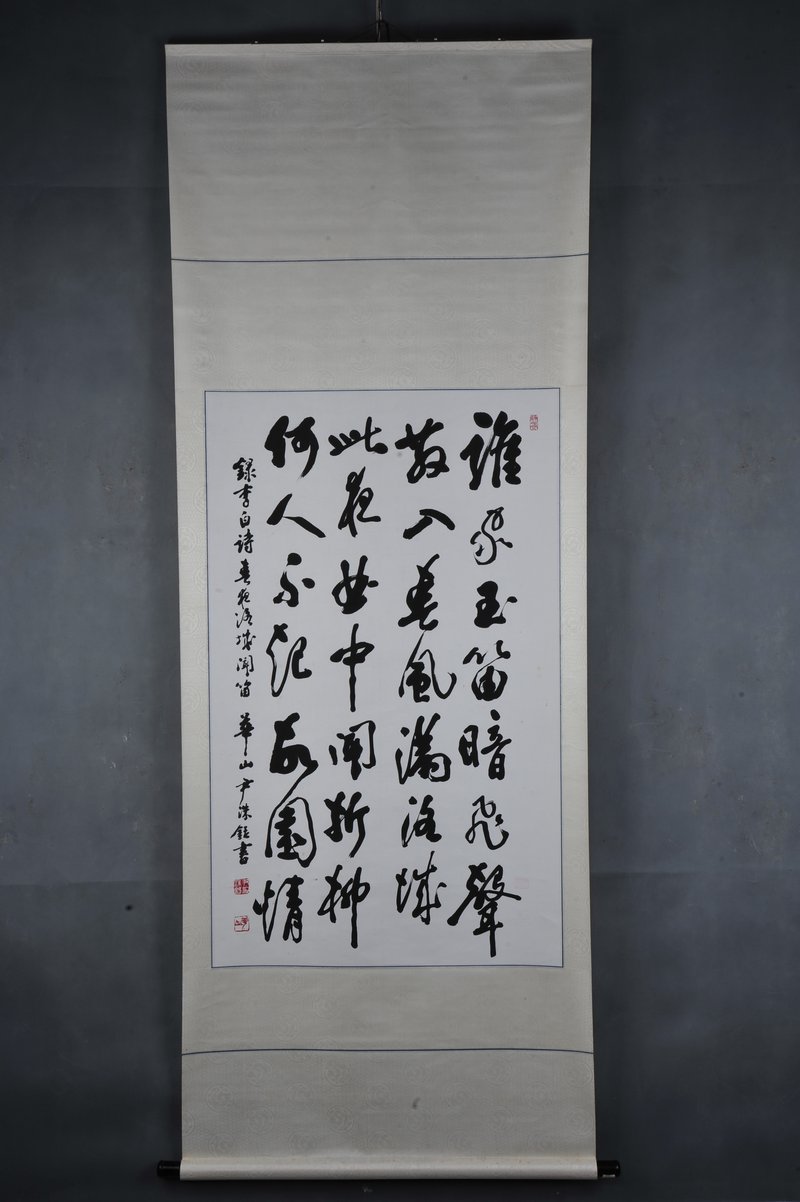 誰家玉笛暗飛聲
散入春風滿洛城
此夜曲中聞折柳
何人不起故園情
錄李白詩春夜洛城聞笛 華山尹洙鈺書